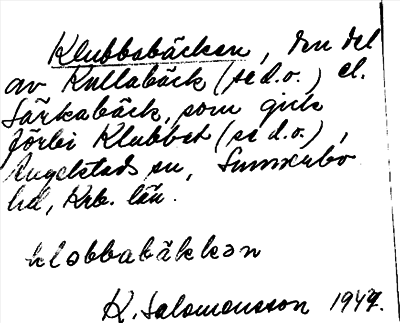 Klubbabäcken, den del
av Kullabäck (se d.o.) el.
Särkabäck, som gick
förbi Klubbet (se d.o.),
Angelstads sn, Sunnerbo
hd, Krb. län.
klobbabäkkən
K. Salomonsson 1947.